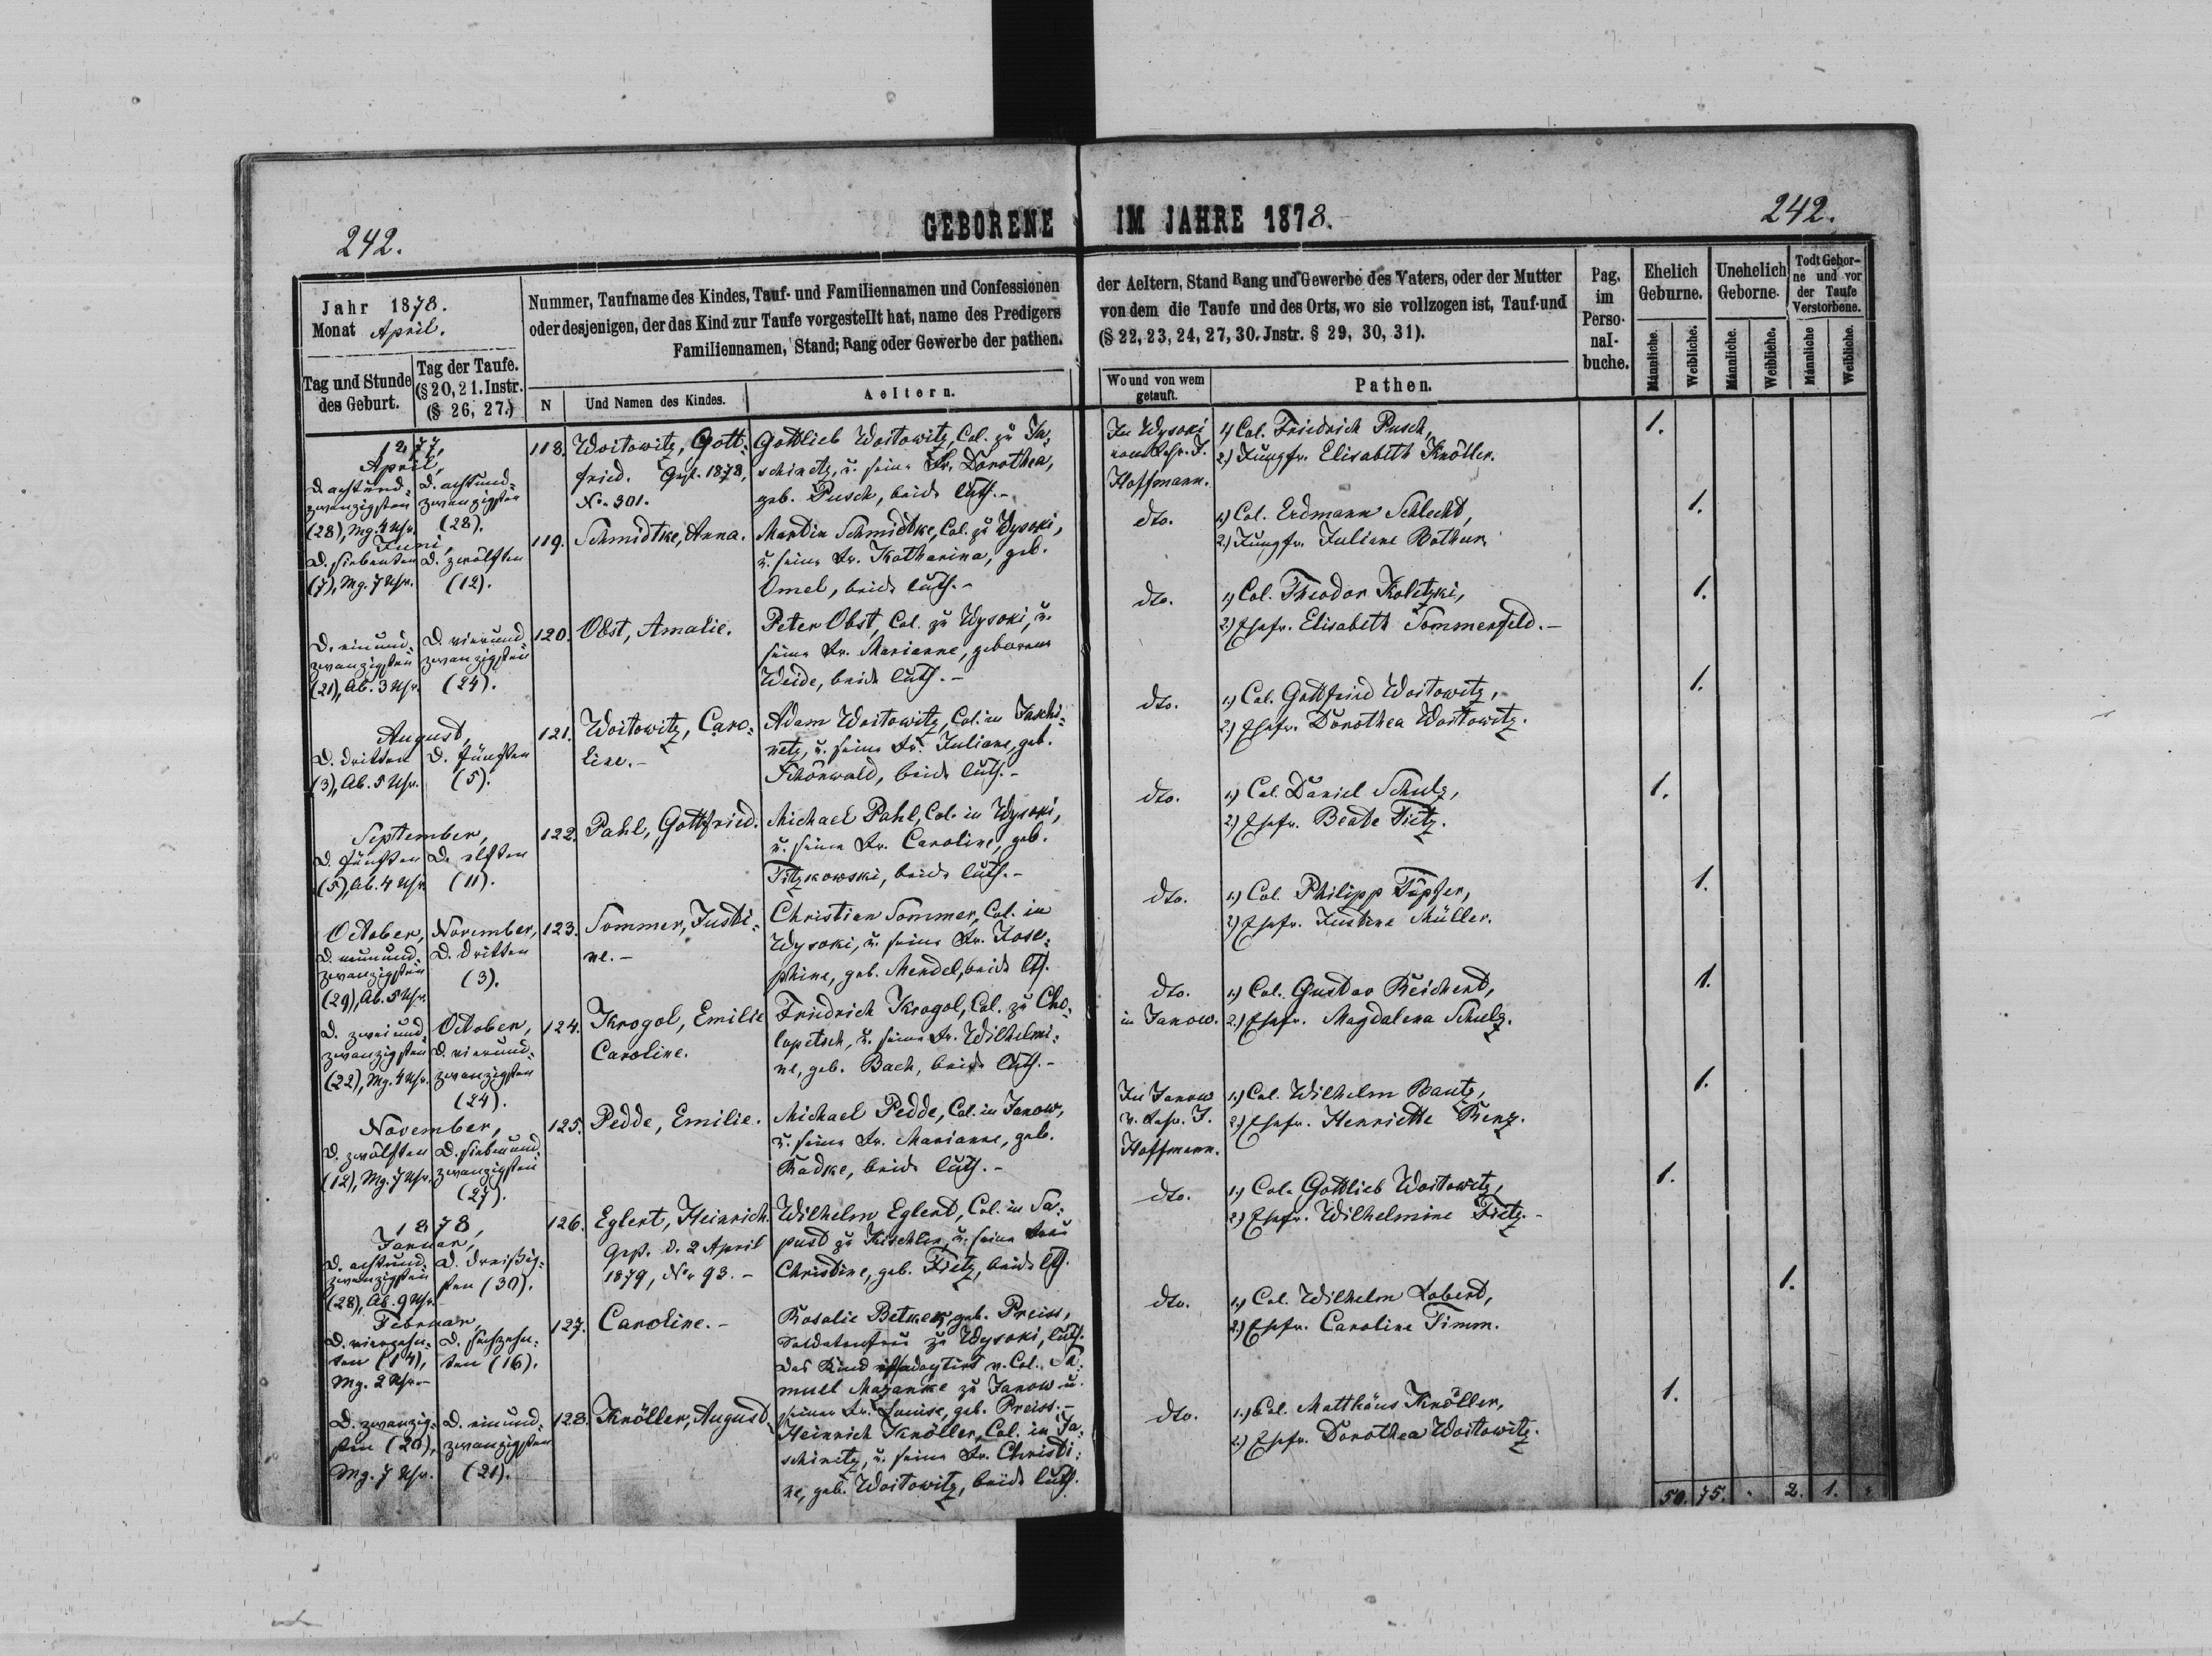 242.
GEBORENE IM JAHRE 1878.
242.
Jahr 1878.
Monat April.
Tag und Stunde des Geburt.
Tag der Taufe.
(§ 20, 21. Instr.
(§ 26, 27.)
Nummer, Taufname des Kindes, Tauf- und Familiennamen und Confessionen
oder desjenigen, der das Kind zur Taufe vorgestellt hat, name des Predigers
Familiennamen, Stand; Rang oder Gewerbe der pathen.
N
Und Namen des Kindes.
Aeltern.
der Aeltern, Stand Rang und Gewerbe des Vaters, oder der Mutter
von dem die Taufe und des Orts, wo sie vollzogen ist, Tauf-und
(§ 22, 23, 24, 27, 30. Jnstr. § 29, 30, 31).
Wo und von wem
getauft.
Pathen.
Pag.
im
Perso-
nal-
buche.
Ehelich
Geburne.
Unehelich
Geborne.
Todt Gebor-
ne und vor
der Taufe
Verstorbene.
Männliche.
Weibliche.
Männliche.
Weibliche.
Männliche
Weibliche.
1877,
April,
D. achtund-
zwanzigsten
(28), Mg. 4 Uhr.
D. achtund-
zwanzigsten
(28).
118.
Woitowitz, Gott-
fried. 1878,
No. 301.
Gottlieb Woitowitz, Col. zu Ja-
schinetz, u. seine Fr. Dorothea,
geb. Pusch, beide luth.-
In Wysoki
vom Lehr. J.
Hoffmann.
1) Col. Friedrich Pusch,
2.) Jungfr. Elisabeth Knöller.
1.
Juni,
D. siebenten
(7), Mg. 7 Uhr.
D. zwölften
(12).
119.
Schmidtke, Anna.
Martin Schmidtke, Col. zu Wysoki,
u. seine Fr. Katharina, geb.
Omel, beide luth.-
dto.
1.) Col. Erdmann Schlecht,
2.) Jungfr. Juliane Bothur.
1.
D. einund-
zwanzigsten
(21), Ab. 3 Uhr.
D. vierund
zwanzigsten
(24).
120.
Obst, Amalie.
Peter Obst, Col. zu Wysoki, u.
seine Fr. Marianne, geborene
Weide, beide luth.-
dto.
1.) Col. Theodor Koletzki,
2.) Ehefr. Elisabeth Sommerfeld.-
1.
August,
D. dritten
(3), Ab. 5 Uhr.
D. fünften
(5).
121.
Woitowitz, Caro-
line.-
Adam Woitowitz, Col. in Jaschi-
netz, u. seine Fr. Juliane, geb.
Schönwald, beide luth.-
dto.
1.) Col. Gottfried Woitowitz,
2.) Ehefr. Dorothea Woitowitz.
1.
September,
D. fünften
(5), Ab. 4 Uhr.
D. elften
(11).
122.
Pahl, Gottfried.
Michael Pahl, Col. in Wysoki,
u. seine Fr. Caroline, geb.
Titzkowski, beide luth.-
dto.
1.) Col. Daniel Schulz,
2.) Ehefr. Beate Tietz.
1.
October,
D. neunund-
zwanzigsten
(29), Ab. 5 Uhr.
November,
D. dritten
(3).
123.
Sommer, Justi-
ne.-
Christian Sommer, Col. in
Wysoki, u. seine Fr. Jose-
phine, geb. Mendel, beide lth.
dto.
1.) Col. Philipp Töpfer,
2.) Ehefr. Justine Müller.
1.
D. zweiund-
zwanzigsten
(22), Mg. 4 Uhr.
October,
D. vierund-
zwanzigsten
(24).
124.
Krogol, Emilie
Caroline.
Friedrich Krogol, Col. zu Cho-
lopetsch, u. seine Fr. Wilhelmi-
ne, geb. Bach, beide luth.-
dto.
in Janow.
1.) Col. Gustav Reichert,
2.) Ehefr. Magdalena Schulz.
1.
November,
D. zwölften
(12), Mg. 7 Uhr.
D. siebenund-
zwanzigsten
(27).
125.
Pedde, Emilie.
Michael Pedde, Col. in Janow,
u. seine Fr. Marianne, geb.
Radke, beide luth.-
In Janow
v. Lehr. J.
Hoffmann.
1.) Col. Wilhelm Bautz,
2.) Ehefr. Henriette Renz.
1.
1878,
Januar,
D. achtund-
zwanzigsten
(28), Ab. 9 Uhr.
D. dreißig-
sten (30).
126.
Eglent, Heinrich.
d. 2 April
1879, No. 93.-
Wilhelm Eglent, Col. in Sa-
pust zu Kischlin, u. seine Frau
Christine, geb. Tietz, beide lth.
dto.
1.) Col. Gottlieb Woitowitz,
2.) Ehefr. Wilhelmine Tietz.-
1.
Februar,
D. vierzehn-
ten (14),
Mg. 2 Uhr.-
D. sechzehn-
ten (16).
127.
Caroline.-
Rosalie Betker, geb. Preiss,
Soldatenfrau zu Wysoki, luth.
Das Kind ist adoptirt v. Col. Sa-
muel Mazanke zu Janow u.
seiner Fr. Louise, geb. Preiss.-
dto.
1.) Col. Wilhelm Lobert,
2.) Ehefr. Caroline Timm.
1.
D. zwanzig-
sten (20),
Mg. 7 Uhr.
D. einund-
zwanzigsten
(21).
128.
Knöller, August.
Heinrich Knöller, Col. in Ja-
schinetz, u. seine Fr. Christi-
ne, geb. Woitowitz, beide luth.
dto.
1.) Col. Matthäus Knöller,
2.) Ehefr. Dorothea Woitowitz.
1.
50. 75. " 2. 1. "